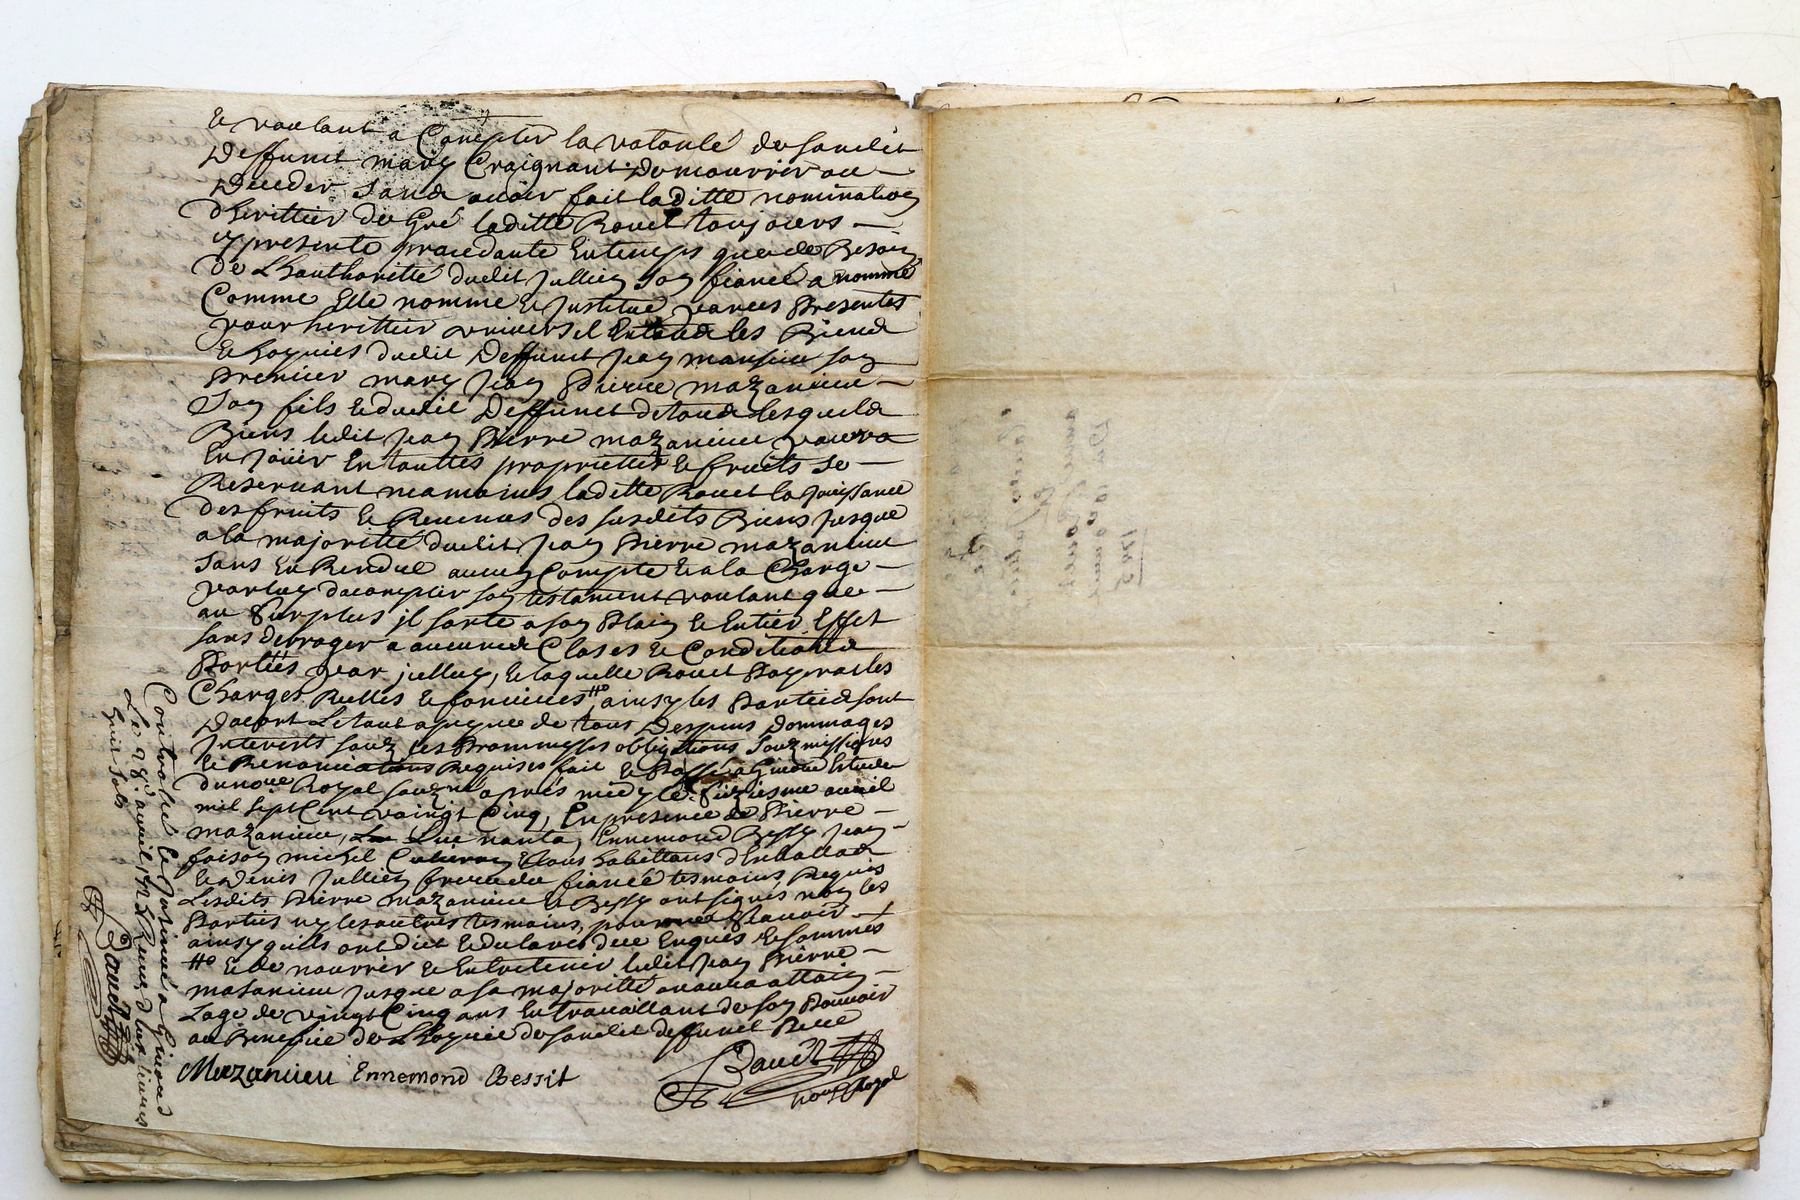 Et voulant a Compter la volonté de sondit
Deffunct mary Craignant de mourrir ou
Deceder sans avoir fait laditte nomination
d'herittier de Gré laditte Rouet toujours
ypresente procedante Entemps que de Besoin
De Lhauthoritté dudit Jullien son fiancé a nommé
Comme Elle nomme & Justitue par ces Presentes
pour herittier universel En tous les Biens
& hoyries dudit Deffunct Jean mansieu son
Premier mary Jean Pierre mazanieu
Son fils & dudit Deffunct de tous Lesquels
Biens ledit Jean Pierre mazanieu pourra
En Joüir En touttes proprietté & fruits se
Reservant neamoins laditte Rouet la Joüissance
des fruits & Revenus des susdits Biens Jusque
a la majoritté dudit Jean Pierre mazanieu
sans En Rendre aucun Compte & a la Charge
par luy dacomplir son testament voulant que
au Surplus il sorte a son Plain & Entier Effet
sans deroger a aucunes Clases & Conditions
Portéés par jcelluy, & laquelle Rouet Payra les
Charges Reelles & foncieres ainsy les Parties sont
Dacort Letout a peyne de tous Despens Dommages
Interests souz les Prommesses obligations Souzmissions
& Renonciations Requises fait & Passé a Givord Estude
du nore Royal souzné aprés midy le seiziesme avril
mil sept Cent vaingt Cinq, En presence de Pierre
mazanieu, Luc nanta, Ennemond Bessy Jean
foison michel & tous habittans d'Enhallas
& Denis Jullien frere du fiancé tesmoins Requis
Lesdits Pierre mazanieu & Bessy ont signés non les
Parties ny les autres tesmoins, pour ne sçavoir
ainsy quils ont dict & declarés de ce Enquis & sommés
& de nourrir & Entretenir ledit Jean Pierre
masanieu Jusque a sa majoritté ou aura attain
Lage de vaingt Cinq ans En travaillant de son Pouvoir
au Benefice de Lhoyrie de sondit deffunct Pere
Mazanieu Ennemond Bessit
nore Royal
Controllé & Insinué a Givord
Le 28e avril 1725 Receu deux livres
huit sols
1725